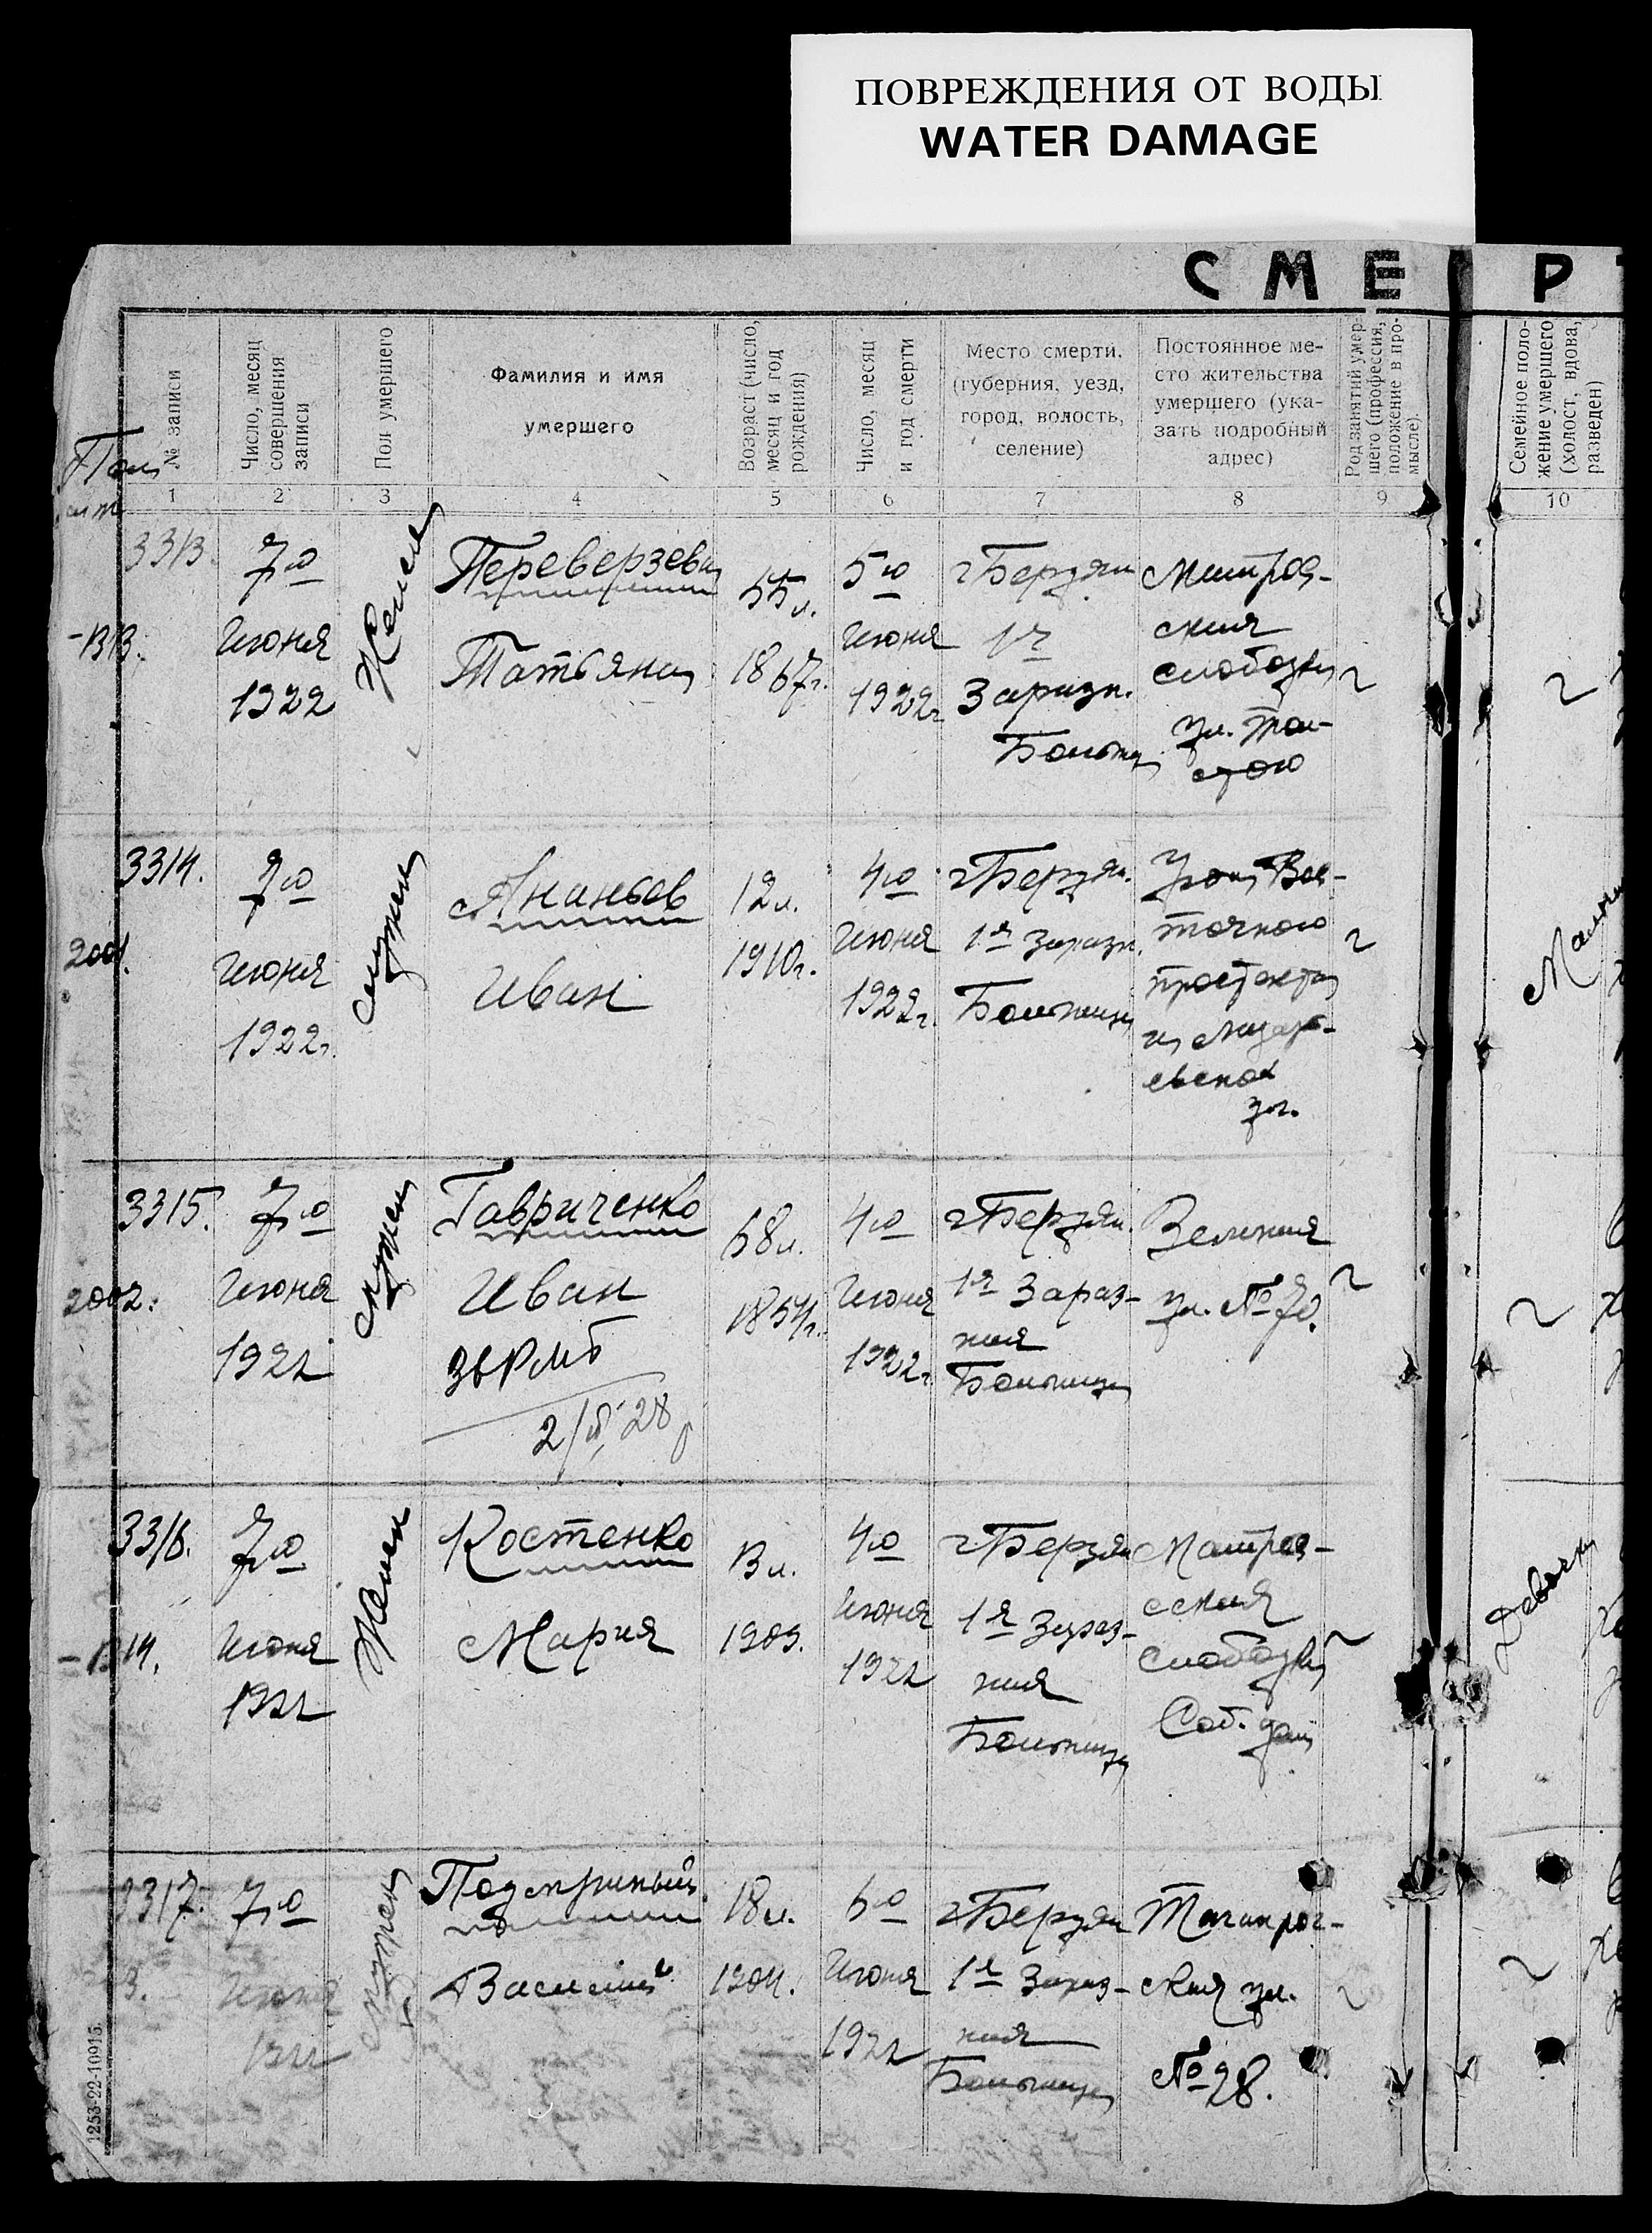 ПОВРЕЖДЕНИЯ ОТ ВОДЫ
WATER DAMAGE
СМЕР
№ записи
Число, месяц совершения записи
Пол умершего
Фамилия и имя
умершего
Возраст (число, месяц и год рождения)
Число, месяц и год смерти
Место смерти,
(губерния, уезд,
город, волость,
селение)
Постоянное ме-
сто жительства
умершего (ука-
зать подробный
адрес)
Род занятий умер-
шего (профессия,
положение в про-
мысле).
Семейное поло-
жение умершего
(холост, вдова,
разведен)
1 2 3 4 5 6 7 8 9 10
3313.
7го
Июня
1922
Женск
Переверзева
Татьяна
55л.
1867г.
5го
Июня
1922г
г Бердян
1я
Заразн.
Больниц
слободка
ул. Тол-
стого
3314.
2001.
7го
Июня
1922г.
мужск
Ананьев
Иван
12л.
1910г.
4го
Июня
1922г.
г Бердян.
1я Заразн.
Больница
Угол Вос-
точного
проспекта
ул.
3315.
2002.
7го
Июня
1922
мужск
Гавриченко
Иван
68л.
1854г.
4го
Июня
1922г.
г Бердян.
1я Зараз-
ная
Больница
ул. № 70.
3316.
7го
Июня
1922
Женск
Костенко
Мария
13л.
1909.
4го
Июня
1922
г Бердян
1я Зараз-
ная
Больница
Матрос-
ская
слободка
Соб. дом
Девочка
3317.
7го
Июня
1922
мужск
Василий
18л.
1904.
6го
Июня
1922
г Бердян
1я Зараз-
ная
Больница
Таганрог-
ская ул.
№ 28.
1253-22-10915.